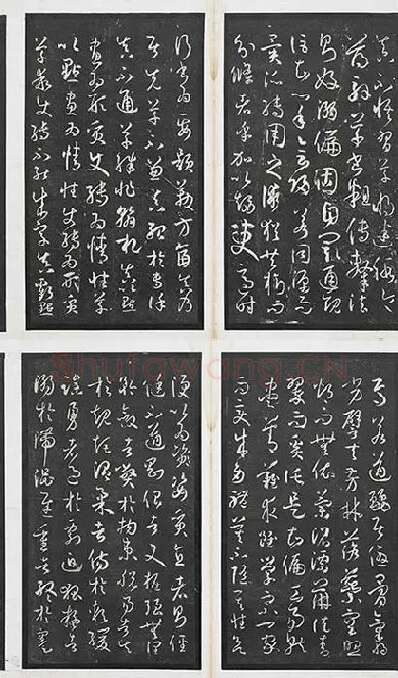 真不悟習草將迷假令
薄解草書粗傳隸法
則好溺偏固自闋通規
詎知心手會歸若同源而
異派轉用之術猶共樹而
分條者乎加以趨變適時
行書為要題勒方畐真乃
居先草不兼真殆於專謹
真不通草殊非翰札真以點
畫為形質使轉為情性草
以點畫為情性使轉為形質
草乖使轉不能成字真虧點
焉若遒麗居優骨氣將
劣譬夫芳林落蕊空照
灼而無依蘭沼漂萍徒青
翠而奚託是知偏工易就
盡善難求雖學宗一家
而變成多體莫不隨其性欲
便以為姿質直者則徑
侹不遒剛佷者又掘強無潤
矜斂者弊於拘束脫易者失
於規矩溫柔者傷於軟緩
躁勇者過於剽迫狐疑者
溺於滯澀遲重者終於蹇
Shufawang.cn